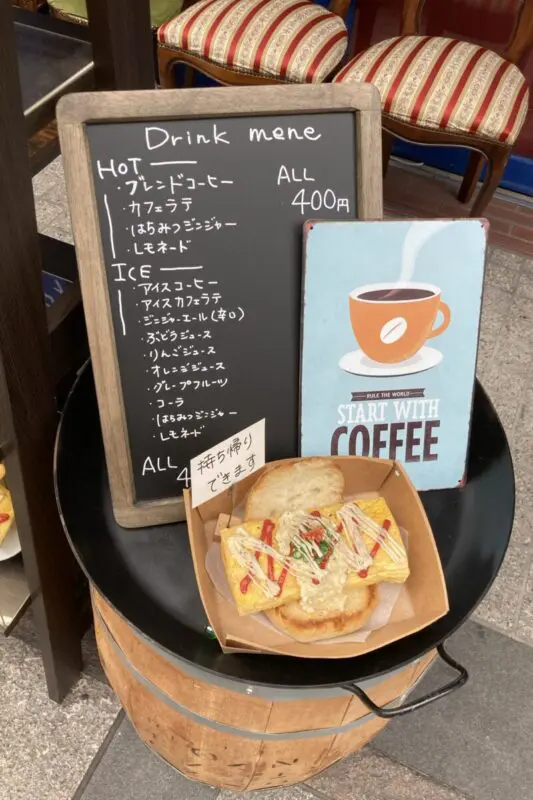 Drink mene
HOT
・ブレンドコーヒー
・カフェラテ
・はちみつジンジャー
・レモネード
ALL
400円
ICE
・アイスコーヒー
・アイスカフェラテ
・ジンジャーエール(辛口)
・ぶどうジュース
・りんごジュース
・オレンジジュース
・グレープフルーツ
・コーラ
・はちみつジンジャー
・レモネード
ALL 4
持ち帰り
できます
RULE THE WORLD
START WITH
COFFEE